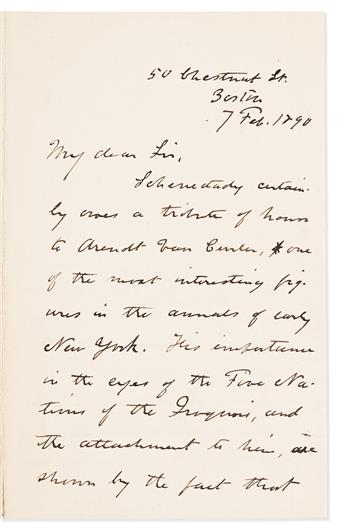 50 Chestnut St.
Boston
7 Feb. 1890
My dear Sir,
Schenectady certain-
ly owes a tribute of honor
to Arendt Van Curler, one
of the most interesting fig-
ures in the annals of early
New York. His importance
in the eyes of the Five Na-
tions of the Iroquois, and
the attachment to him, are
shown by the fact that